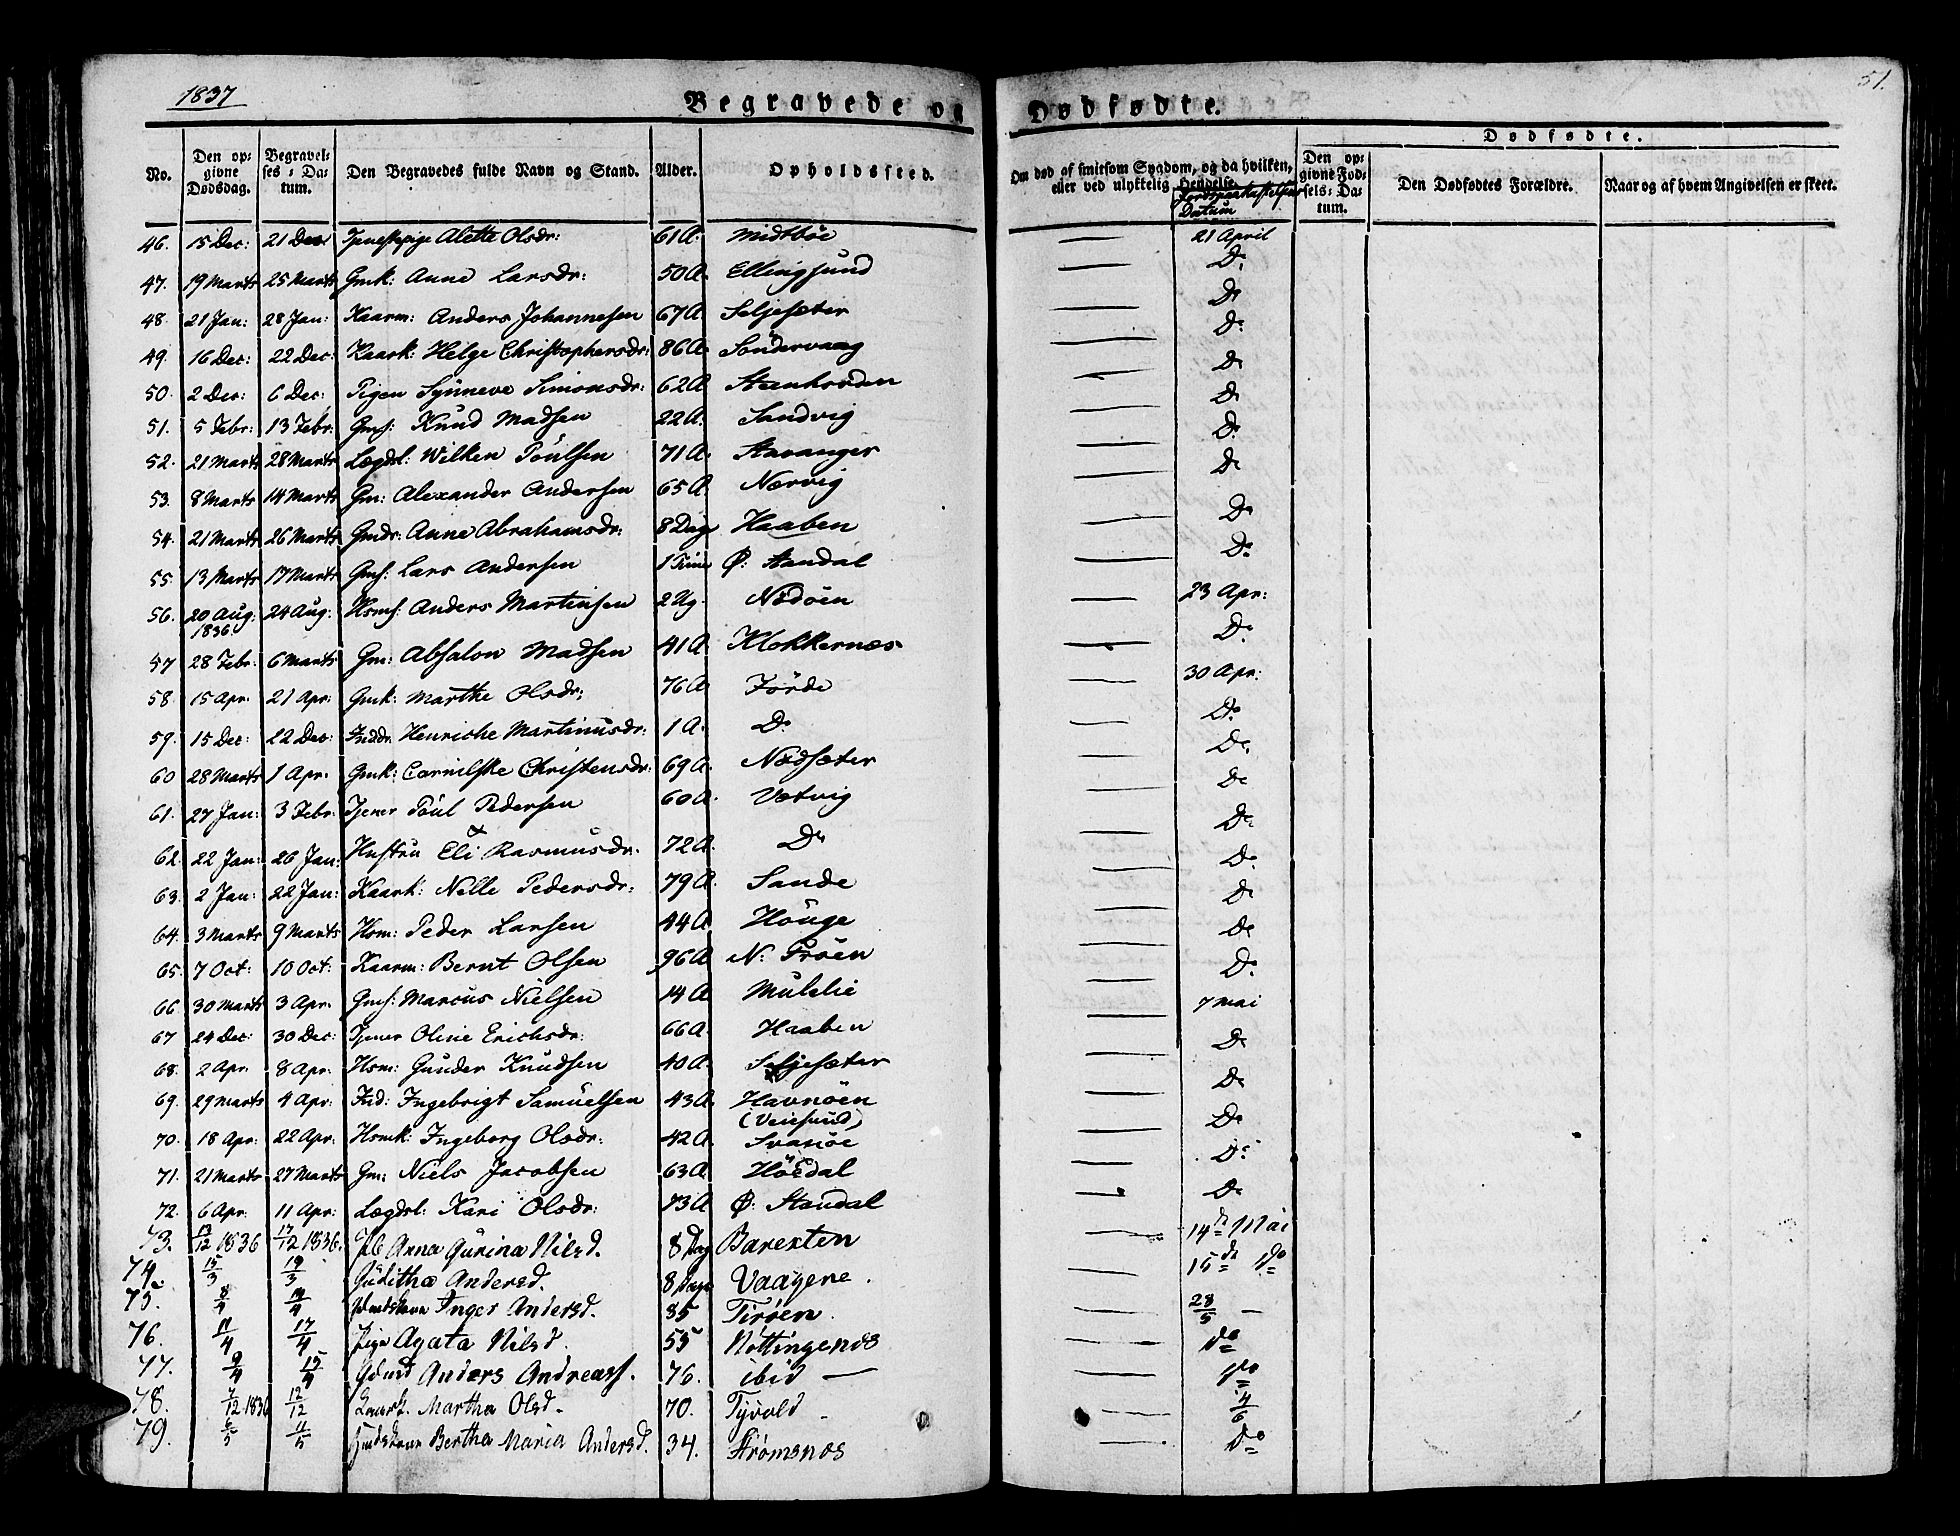 1837
51.
Begravede og Dødfødte.
Dødfødte.
No.
Den opgivne Dødsdag.
Begravelses-Datum.
Den Begravedes fulde Navn og Stand.
Alder.
Opholdssted.
Om død af smitsom Sygdom, og da hvilken, eller ved ulykkelig Hendelse.
Jordspaakastelses Datum
Den opgivne Fødsels-Datum.
Den Dødfødtes Forældre.
Naar og af hvem Angivelsen er skeet.
46. 15 Dec: 21 Dec: Tjenestepige Alette Olsdr: 61 A. Midtböe — 21 April
47. 19 Marts 25 Marts Gmk: Anne Larsdr: 50 A. Ellingsund — D:
48. 21 Jan: 28 Jan: Kaarm: Anders Johannesen 67 A. Seljesæter — D:
49. 16 Dec: 22 Dec: Kaark: Helge Christophersdr: 86 A. Söndervaag — D:
50. 2 Dec: 6 Dec: Pigen Synneve Simonsdr: 62 A. Steenhovden — D:
51. 5 Febr: 13 Febr: Gms: Knud Madsen 22 A. Sandvig — D:
52. 21 Marts 28 Marts Lægdsl: Wilken Poulsen 71 A. Stavanger — D:
53. 8 Marts 14 Marts Gm: Alexander Andersen 65 A. Nærvig — D:
54. 21 Marts 26 Marts Gmdr: Anne Abrahamsdr: 8 Dage Haaben — D:
55. 13 Marts 17 Marts Gms: Lars Andersen 1 Time Ø: Standal — D:
56. 20 Aug: 1836 24 Aug: Hsms: Anders Martinsen 2 Ug. Nødöen — 23 Apr:
57 28 Febr: 6 Marts Gm: Absalon Madsen 41 A. Klokkernæs — D:
58. 15 Apr. 21 Apr: Gmk: Marthe Olsdr: 76 A. Förde — 30 Apr:
59. 15 Dec: 22 Dec: Inddr: Henriche Martinusdr: 1 A. D: — D:
60 28 Marts 1 Apr. Gmk: Cornilske Christensdr: 69 A. Nødsæter — D:
61. 27 Jan: 3 Febr: Tjener Poul Pedersen 60 A. Vetvig — D:
62. 22 Jan: 26 Jan: Hustru Eli Rasmusdr. 72 A. D: — D:
63. 2 Jan: 22 Jan: Kaark: Nille Pedersdr: 79 A. Sande — D:
64. 3 Marts 9 Marts Hsm: Peder Larsen 44 A. Houge — D:
65. 7 Oct: 10 Oct: Kaarm: Bernt Olsen 96 A. N: Fröen — D:
66. 30 Marts 3 Apr. Gms: Marcus Nielsen 14 A. Mulelie — D:
67 24 Dec: 30 Dec: Tjener Oline Erichsdr: 66 A. Haaben — 7 Mai
68. 2 Apr. 8 Apr: Hsm: Gunder Knudsen 40 A. Seljesæter — D:
69. 29 Marts 4 Apr: Ind: Ingebrigt Samuelsen 43 A. Havnöen (Veiesund) — D:
70. 18 Apr: 22 Apr: Hsmk: Ingeborg Olsdr: 42 A. Svanöe — D:
71. 21 Marts 27 Marts Gm: Niels Jacobsen 63 A. Höidal — D:
72. 6 Apr: 11 Apr: Lægdsl: Kari Olsdr: 73 A. Ø: Standal — D:
73. 13/12 1836 17/12 1836. Anna Gurina Nilsd. 8 Dag Barexten — 14de Mai
74. 15/3 19/3 Judithæ Andersd. 8 Dage Vaagene. — 15de do
75. 8/4 14/4 Inger Andersd. 85 Tiröen — 28/5 —
76. 11/4 17/4 Pige Agata Nilsd. 55 Nottingenæs — do
77. 9/4 15/4 Gdmd Anders Andreass. 76. ibid — — do
78. 7/12 1836 12/12 Martha Olsd. 70. Tyvold — 4/6
79. 6/5 11/5 Bertha Maria Andersd. 34. Strømsnæs — do